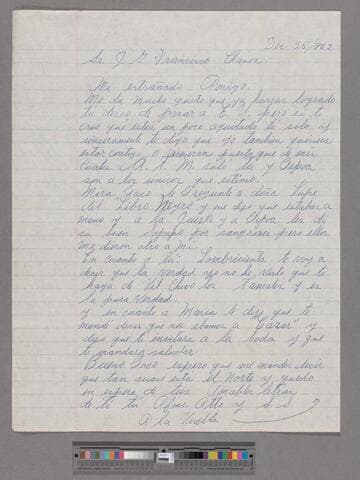 Dic 25/962
Sr J G Francisco Chavez
Mi estrañado Amigo.
Me da mucho gusto que ya hayas logrado
tu deseo de pasar a E. pero si te
creo que estes un poco aguitado tu solo y
sinceramente te digo que yo tambien quisiera
estar contigo
cuates A. X. M. solo tu y Pepoa
son a los unicos que estimo.
Mira Paco le pregunte a doña Lupe
del Libro Negro y me dijo que estaba a
mano y a la Guera y a Pepoa les di
su buen sopapo por sangrones pero ellos
me dieron otro a mi.
En cuanto a la Sombrerienta te voy a
decir que la verdad yo no he visto que te
haya de
la pura verdad.
y en cuanto a Maria le dije que te
mandé decir que se iba a "Casar" y
dijo que te invitara a la boda y que
te mandara saludar.
Bueno Paco espero que me mandes decir
que tan suave esta el Norte y quedo
en espera de tus Amables letras
de ti tu Amo. Atto y S. S.
A la Vuelta